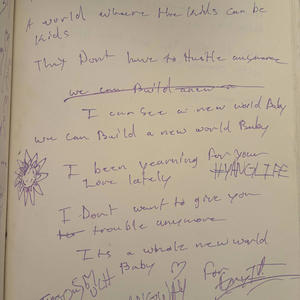 A world where the kids can be
kids
They Dont have to Hustle anymore
we can Build anew
I can see a new world Baby
we can Build a new world Baby
I been yearning for your
Love lately
I Dont want to give you
to trouble anymore
Its a whole new world
Baby
For